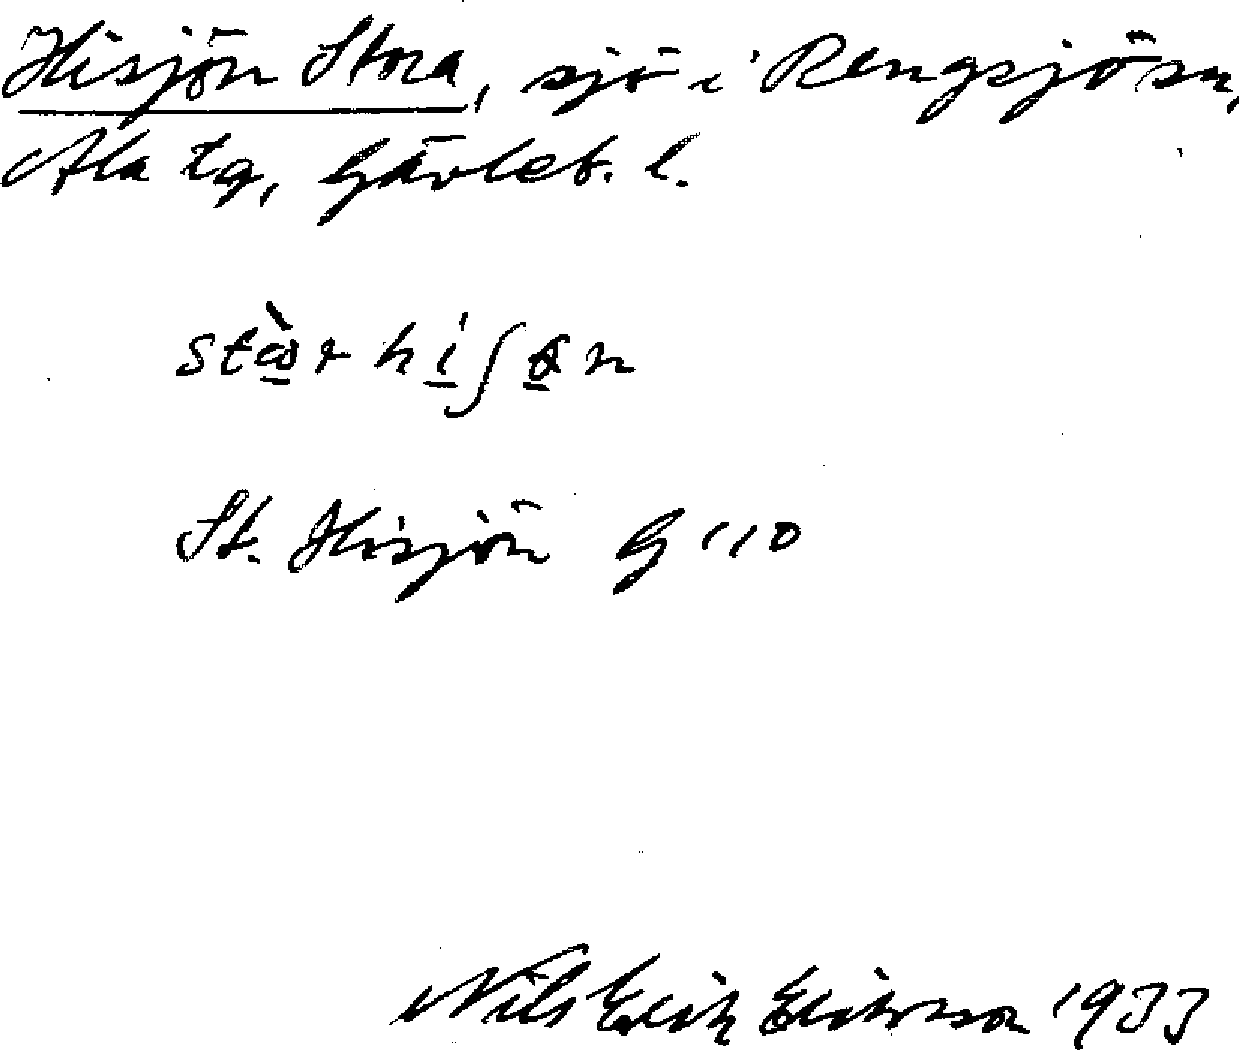 Hisjön Stora, sjö i Rengsjö sn,
Ala tg, Gävleb. l.
St. Hisjön G 110
Nils Erik Eriksson 1933